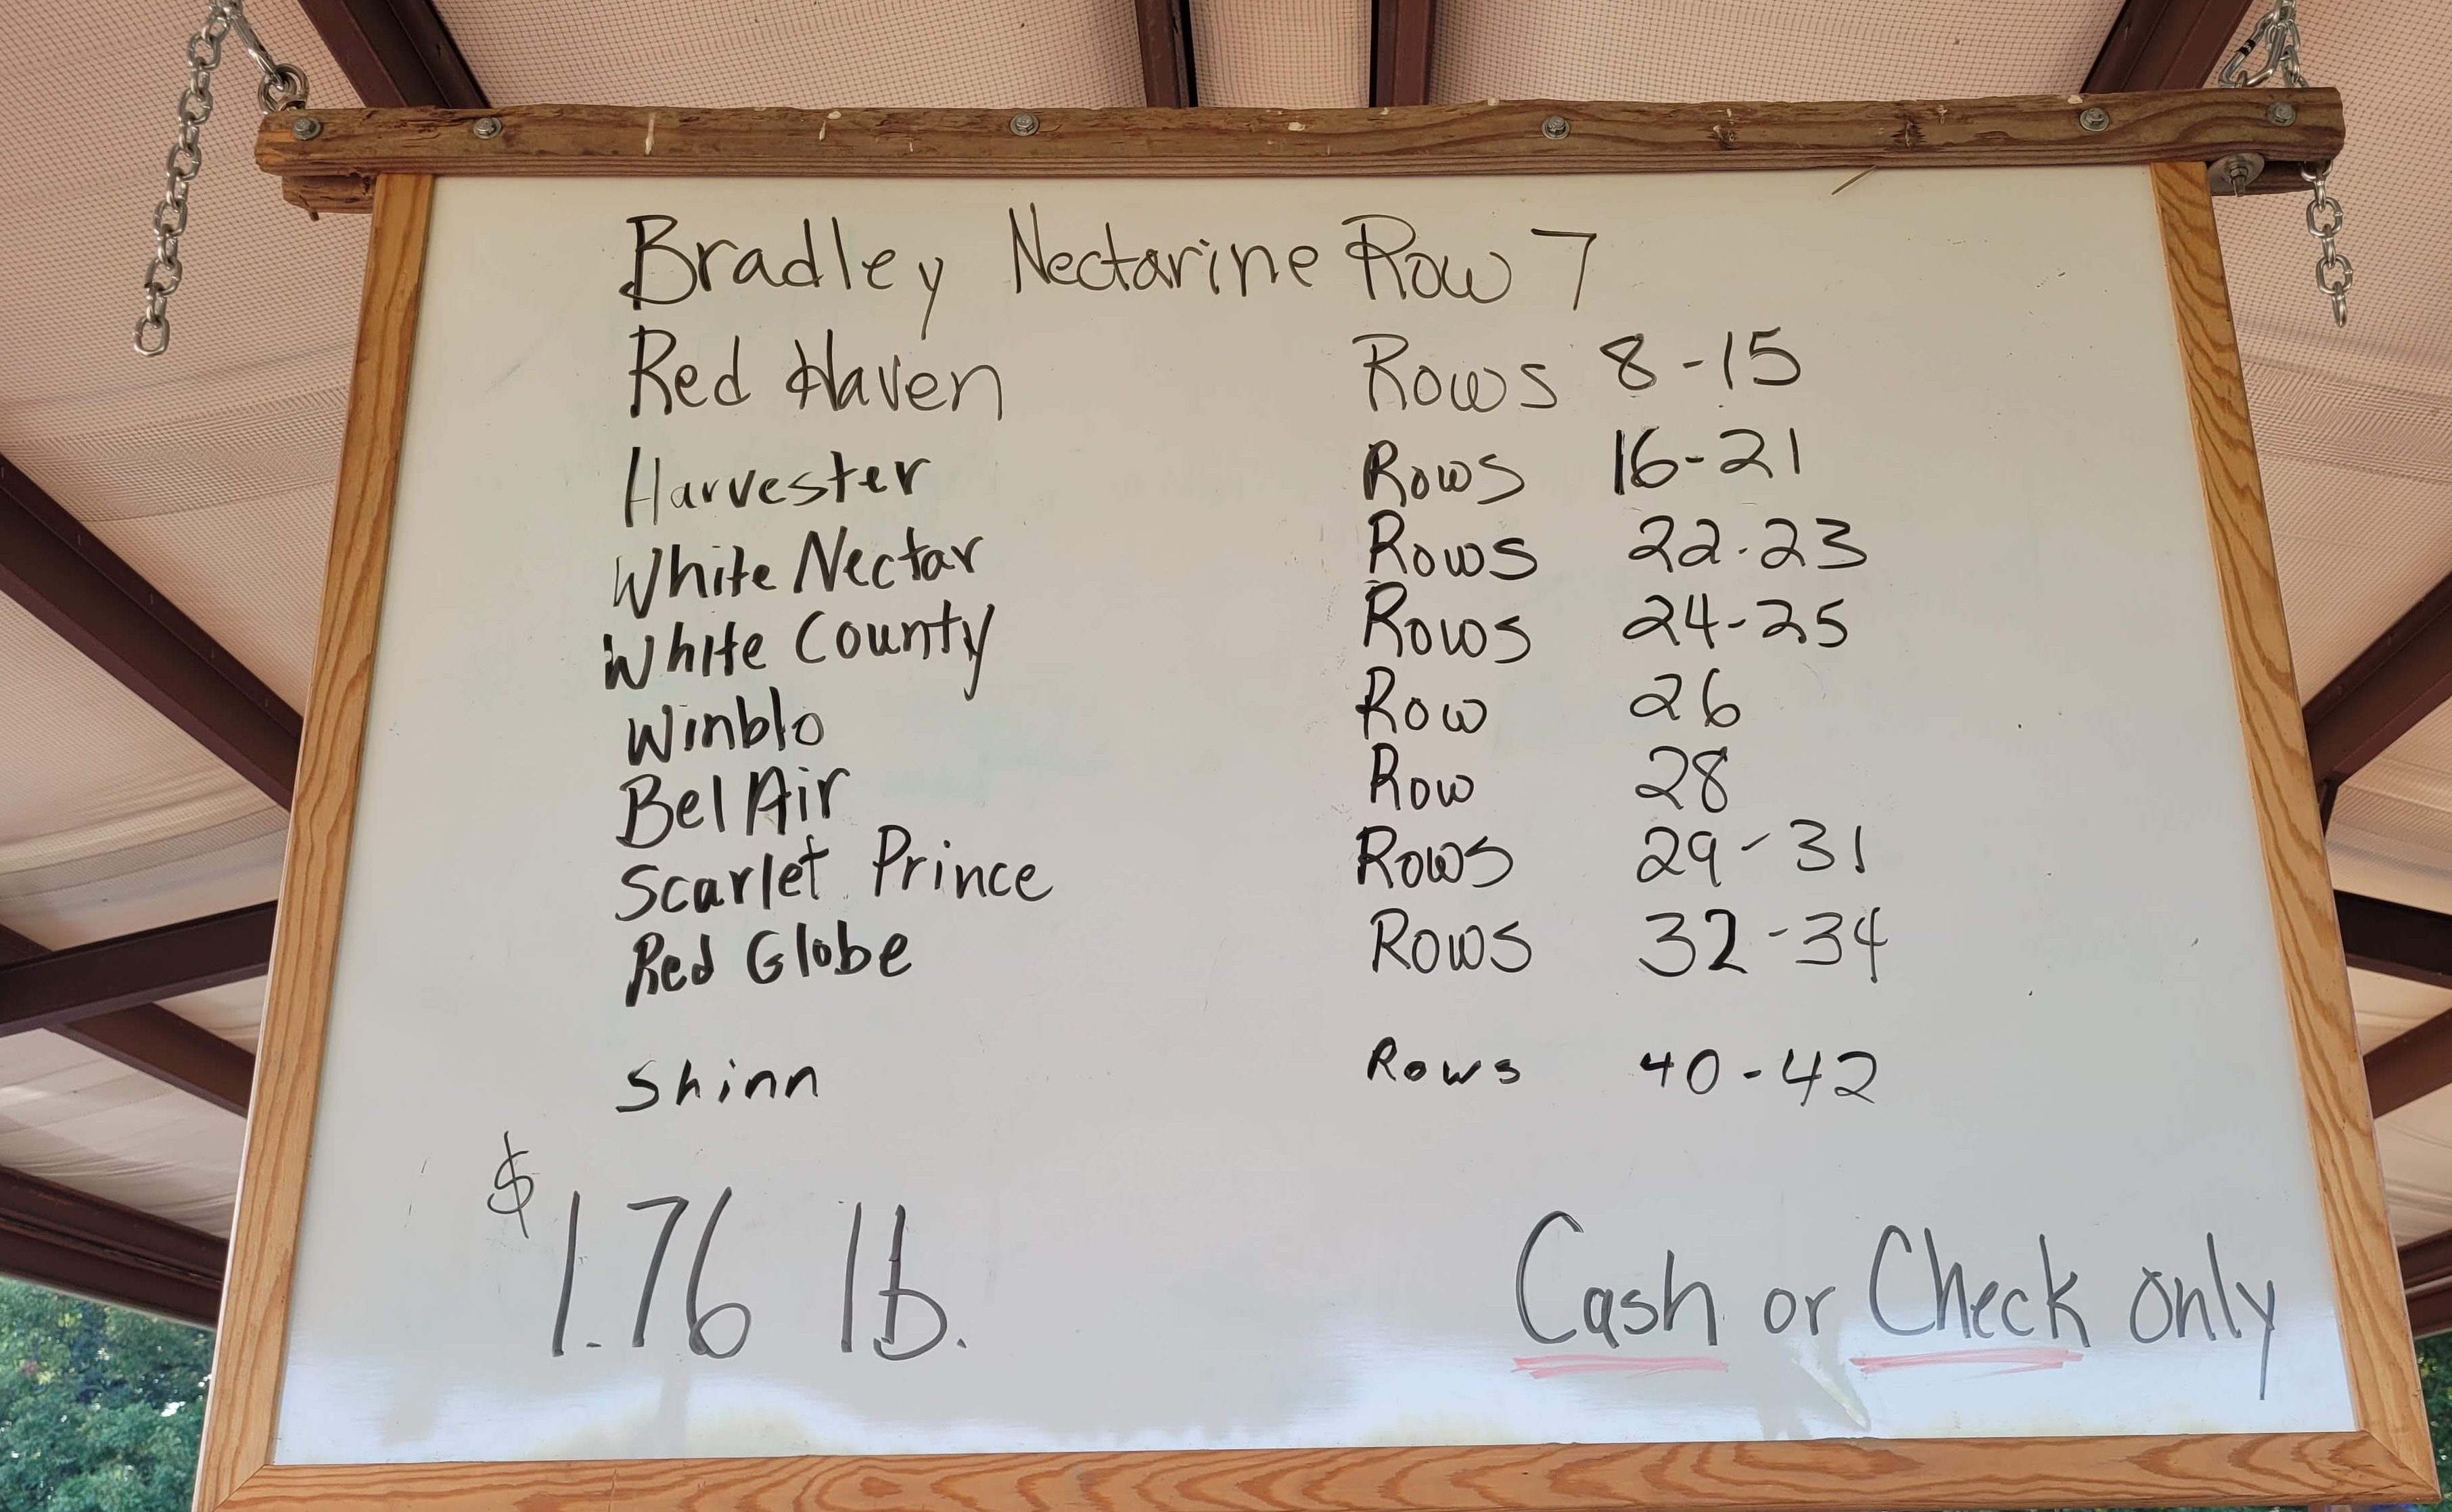 Bradley Nectarine Row 7
Red Haven Rows 8-15
Harvester Rows 16-21
White Nectar Rows 22-23
White County Rows 24-25
Winblo Row 26
Bel Air Row 28
Scarlet Prince Rows 29-31
Red Globe Rows 32-34
Shinn Rows 40-42
$1.76 lb. Cash or Check only